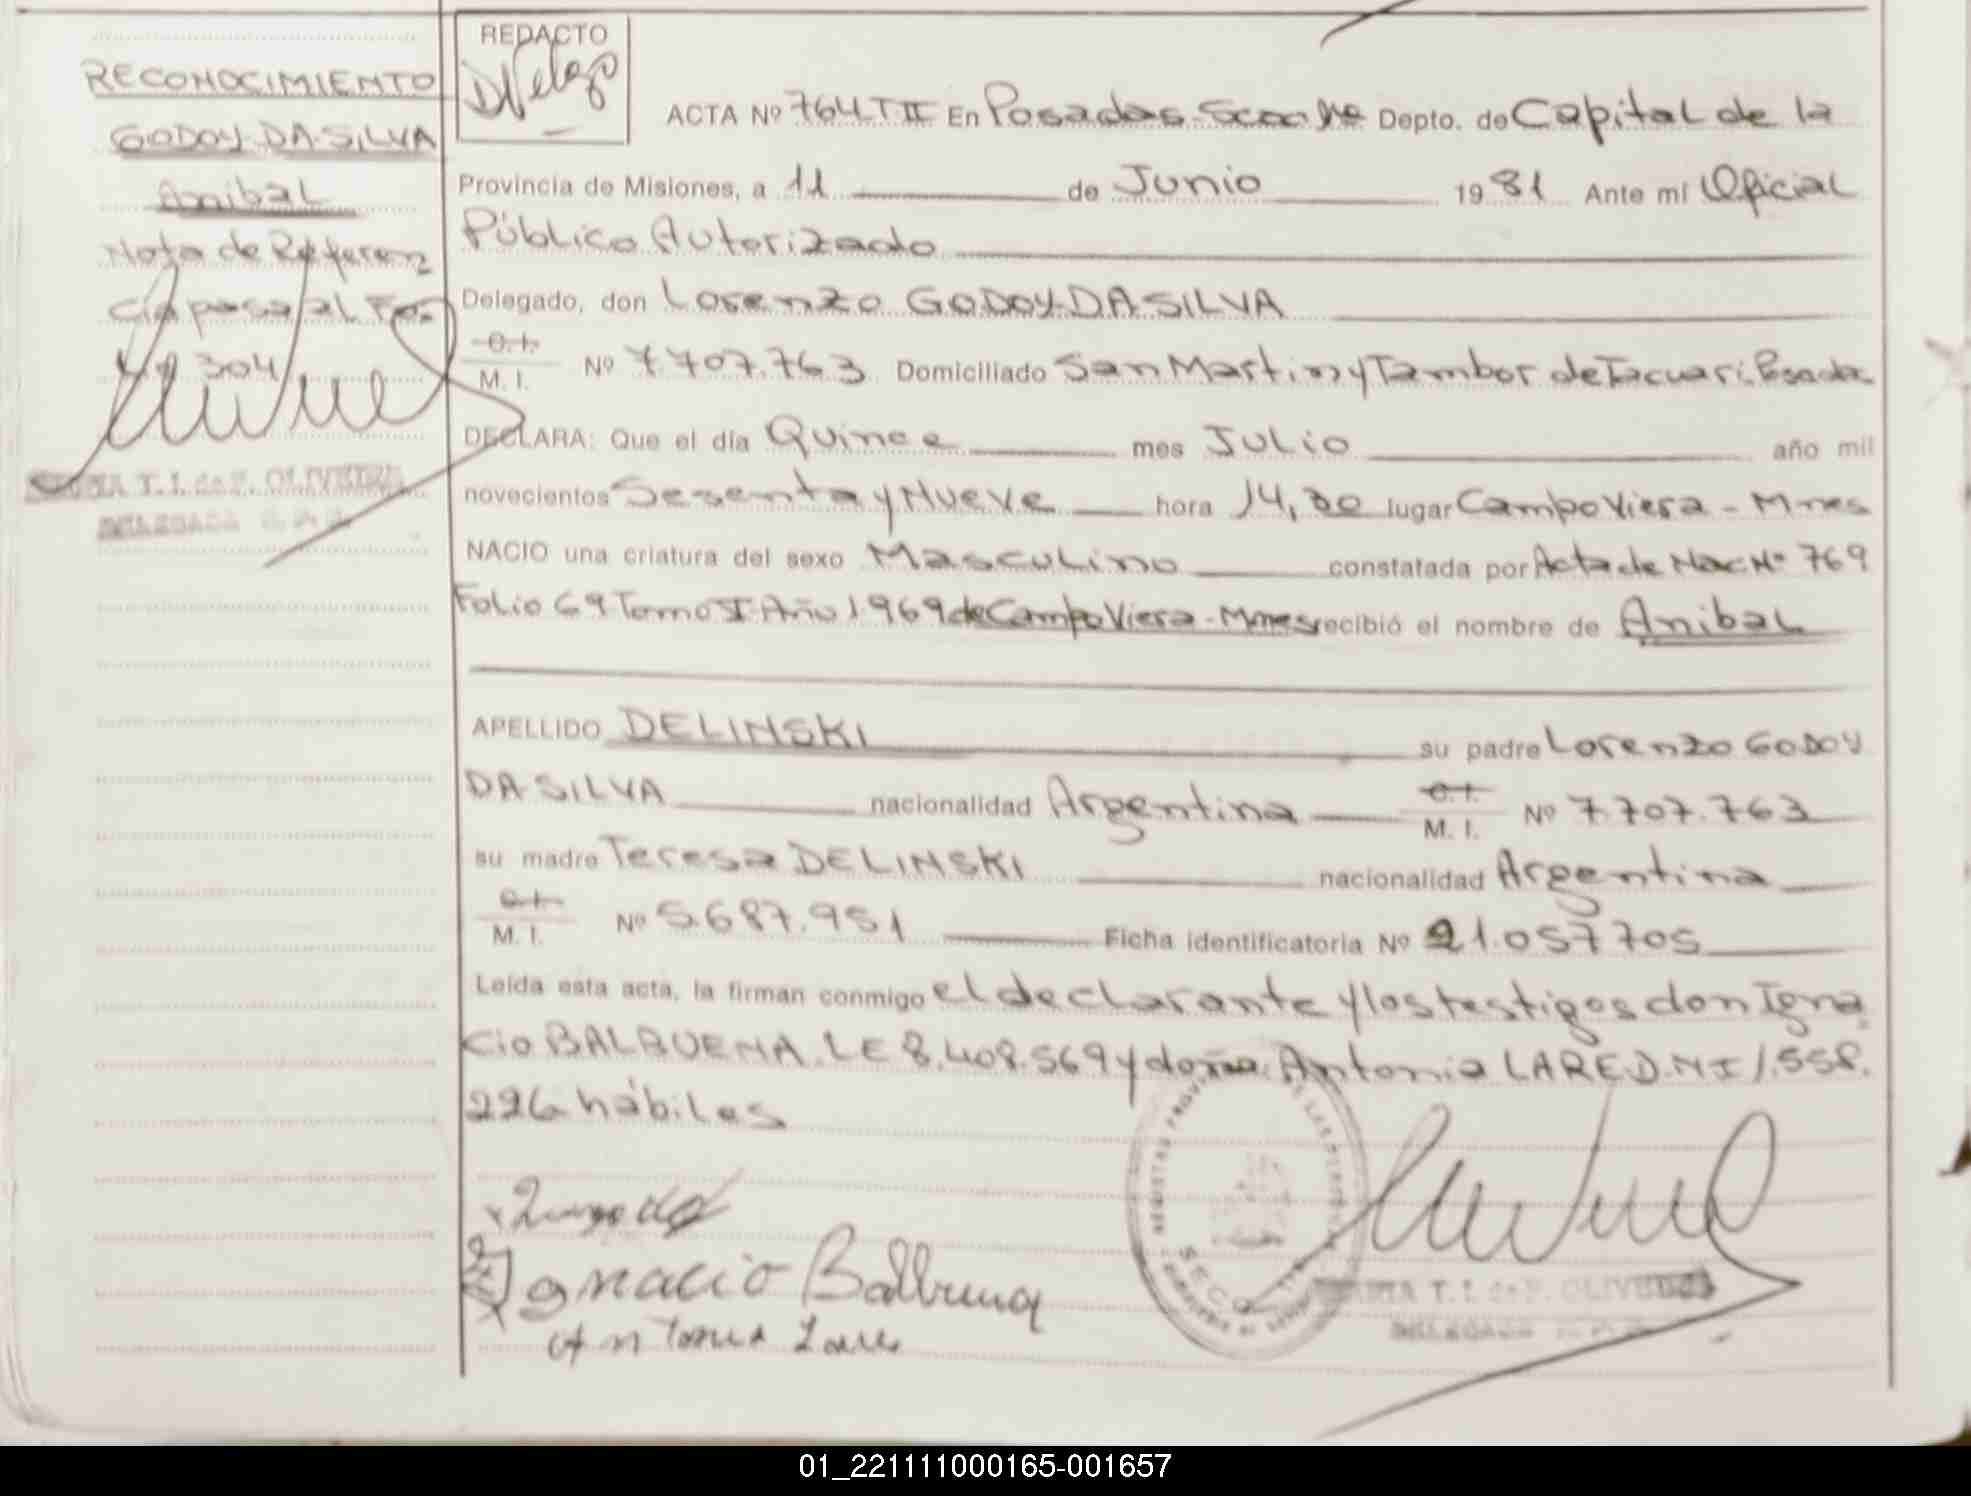 RECONOCIMIENTO
GODOY-DA-SILVA
Anibal
Nota de Referen
cia pasa al Fo.
304
REDACTO
ACTA Nº 764 T II En Posadas Depto. de Capital de la
Provincia de Misiones, a 11 de Junio 1981 Ante mí Oficial
Público Autorizado
Delegado, don Lorenzo GODOY-DA-SILVA
C.I.
M. I. Nº 7.707.763 Domiciliado San Martin y Tambor de Tacuari. Posadas
DECLARA: Que el día Quince mes Julio año mil
novecientos Sesenta y Nueve hora 14,30 lugar Campo Viera - Mnes
NACIO una criatura del sexo Masculino constatada por Acta de Nac Nº 769
Folio 69 Tomo I Año 1969 de Campo Viera - Mnes recibió el nombre de Anibal
APELLIDO DELINSKI su padre Lorenzo GODOY
DA-SILVA nacionalidad Argentina C.I.
M. I. Nº 7.707.763
su madre Teresa DELINSKI nacionalidad Argentina
C.I.
M. I. Nº 5.687.951 Ficha identificatoria Nº 21.057705
Leída esta acta, la firman conmigo el declarante y los testigos don Igna
cio BALBUENA. LE 8.408.569 y doña Antonia LARED. NI 1.558.
226 hábiles
Ignacio Balbuena
Antonia
T. I. de F. OLIVEIRA
DELEGADA
T. I. de F. OLIVEIRA
DELEGADA
01_221111000165-001657